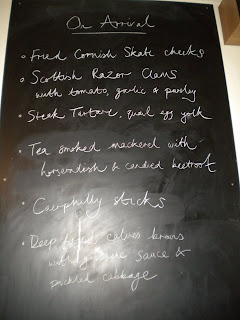 On Arrival
• Fried Cornish Skate cheeks
• Scottish Razor Clams
with tomato, garlic & parsley
• Steak Tartare, quail egg yolk
• Tea smoked mackerel with
horseradish & candied beetroot
• Caerphilly sticks
• Deep fried calves brains
with sauce &
pickled cabbage